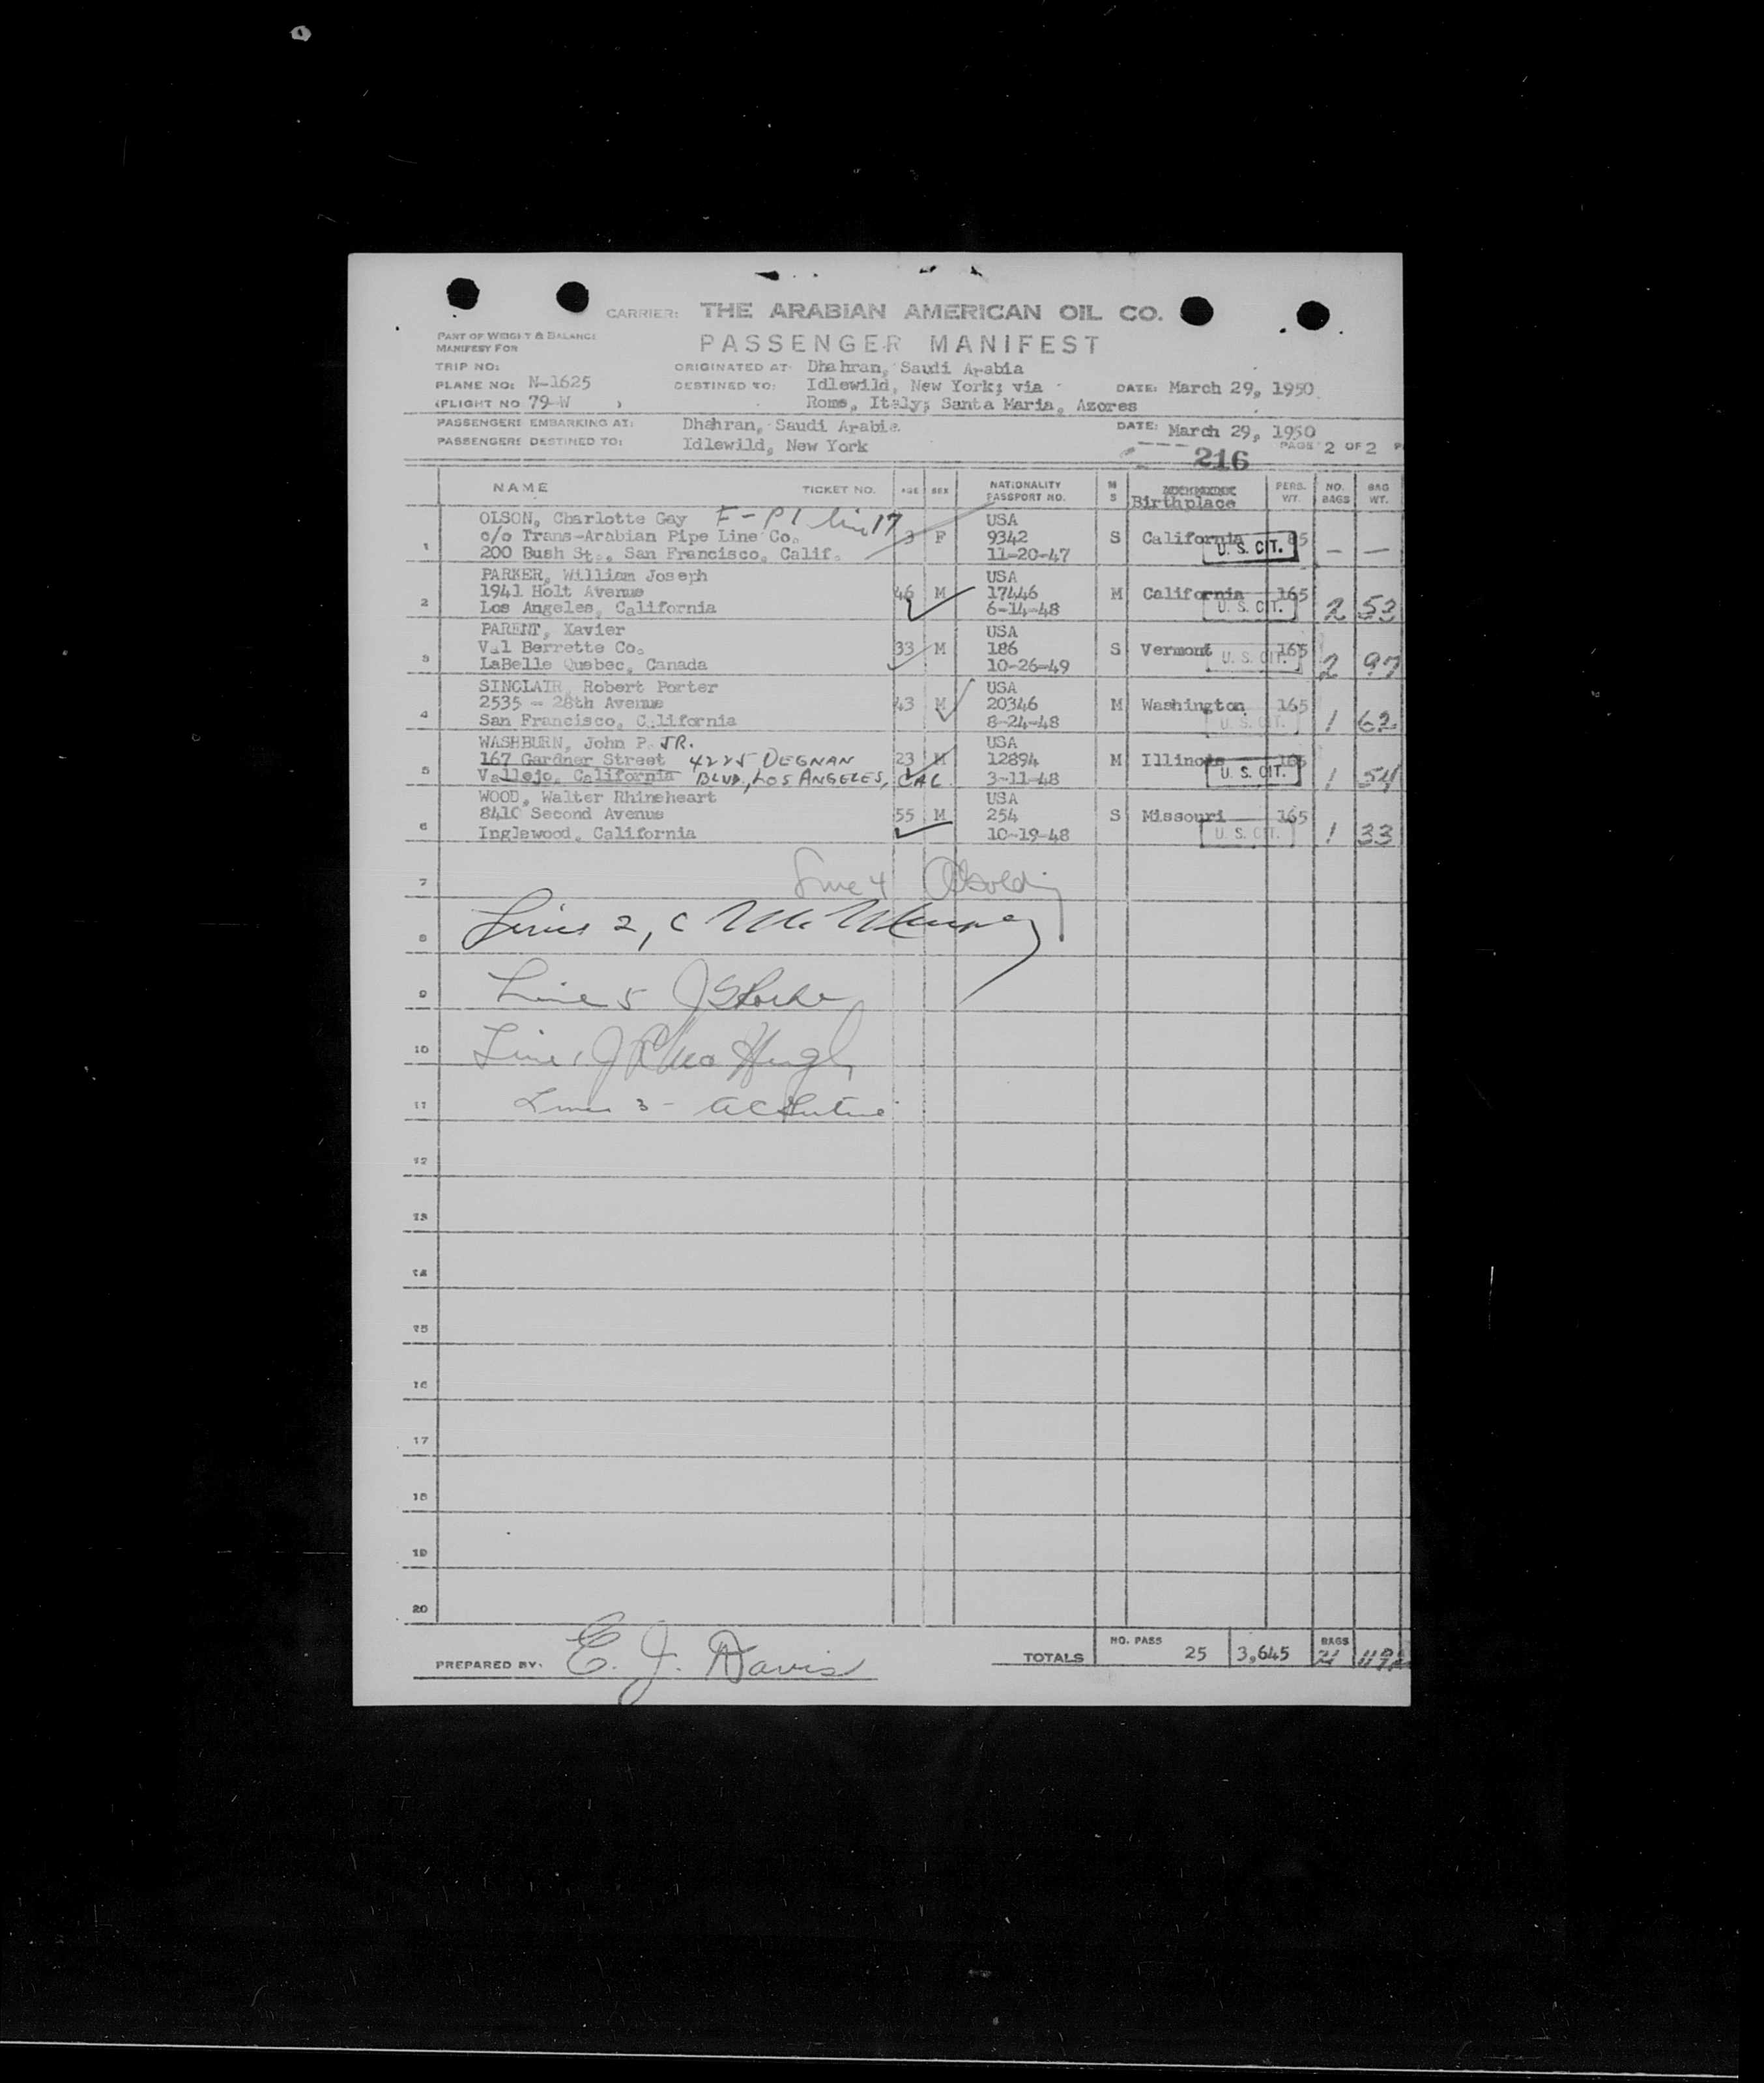 CARRIER: THE ARABIAN AMERICAN OIL CO.
PART OF WEIGHT & BALANCE
MANIFEST FOR
PASSENGER MANIFEST
TRIP NO:
ORIGINATED AT: Dhahran, Saudi Arabia
PLANE NO: N-1625
DESTINED TO: Idlewild, New York; via
DATE: March 29, 1950
(FLIGHT NO 79-W )
Rome, Italy; Santa Maria, Azores
PASSENGERS EMBARKING AT: Dhahran, Saudi Arabia
DATE: March 29, 1950
PASSENGERS DESTINED TO: Idlewild, New York
PAGE 2 OF 2
216
NAME TICKET NO. AGE SEX NATIONALITY PASSPORT NO. M S Birthplace PERS. WT. NO. BAGS BAG WT.
OLSON, Charlotte Gay F-P1 line 17 USA
c/o Trans-Arabian Pipe Line Co. 3 F 9342 S California 85
1 200 Bush St., San Francisco, Calif. 11-20-47 U. S. CIT. — —
PARKER, William Joseph USA
1941 Holt Avenue 46 M 17446 M California 165
2 Los Angeles, California 6-14-48 U. S. CIT. 2 53
PARENT, Xavier USA
Val Berrette Co. 33 M 186 S Vermont 165
3 LaBelle Quebec, Canada 10-26-49 U. S. CIT. 2 97
SINCLAIR, Robert Porter USA
2535 - 28th Avenue 43 M 20346 M Washington 165
4 San Francisco, California 8-24-48 U. S. CIT. 1 62
WASHBURN, John P. JR. USA
167 Gardner Street 4225 DEGNAN 23 M 12894 M Illinois 165
5 Vallejo, California BLVD, LOS ANGELES, CAL. 3-11-48 U. S. CIT. 1 54
WOOD, Walter Rhineheart USA
8410 Second Avenue 55 M 254 S Missouri 165
6 Inglewood, California 10-19-48 U. S. CIT. 1 33
7 Line 4
8 Lines 2, 6
9 Line 5
10 Line 1
11 Line 3 -
12
13
14
15
16
17
18
19
20
PREPARED BY: E. J. Davis
TOTALS NO. PASS 25 3,645 BAGS